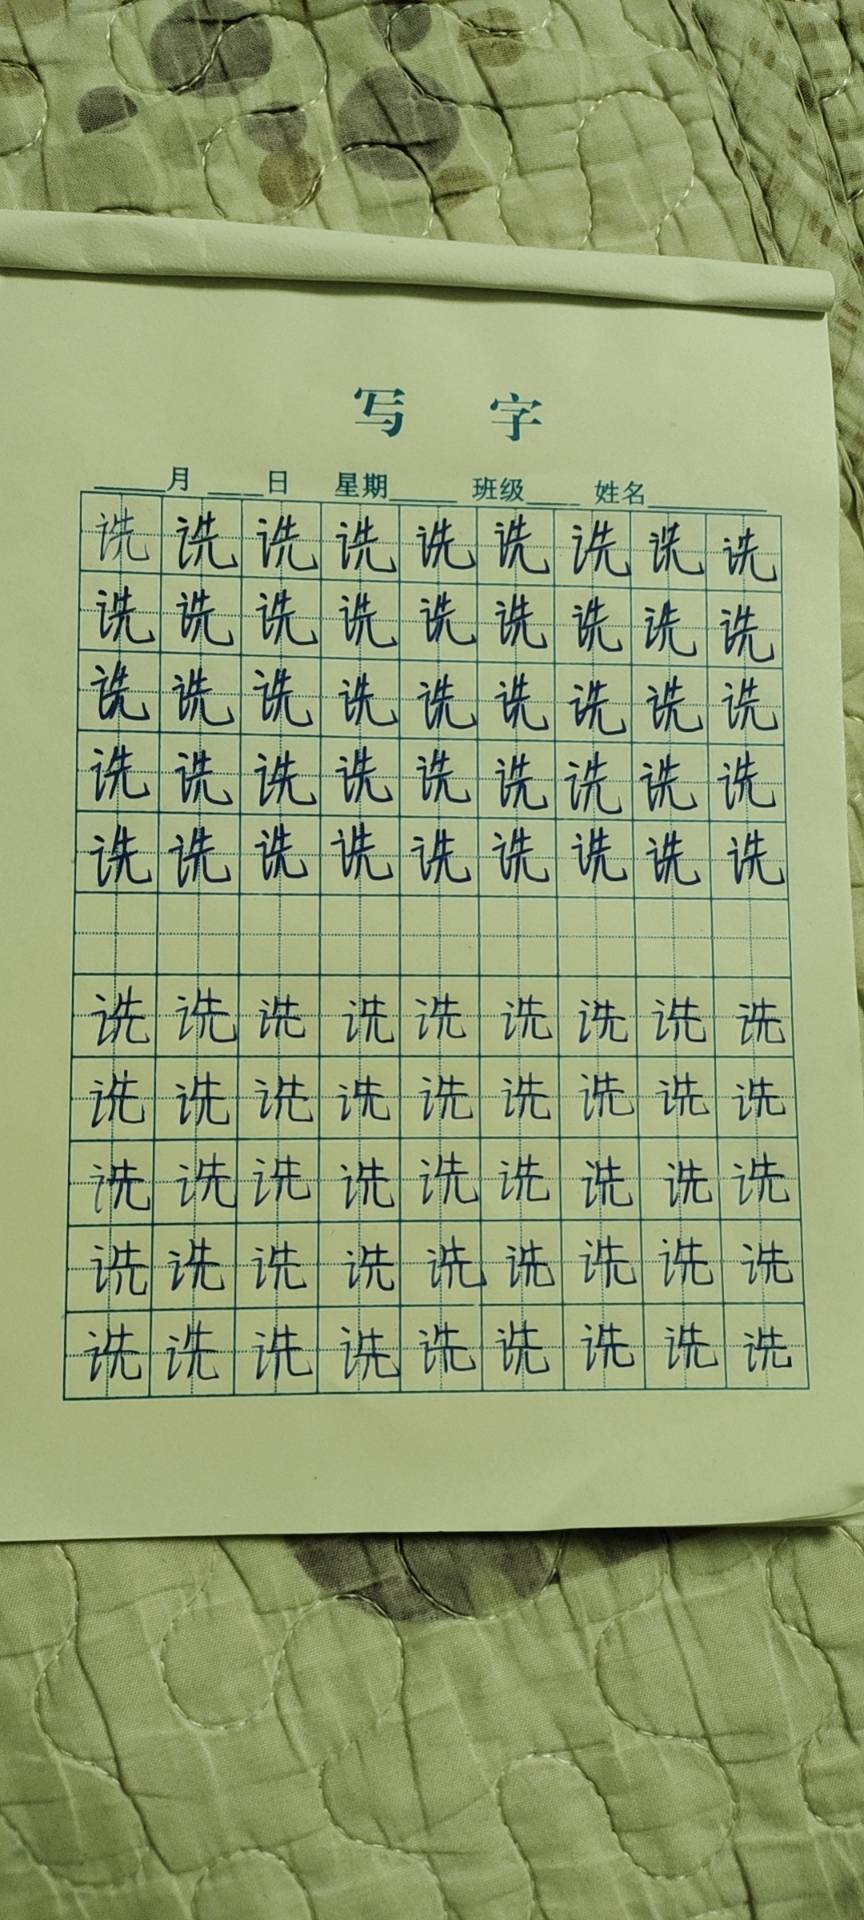 写 字
月 日 星期 班级 姓名
诜 诜 诜 诜 诜 诜 诜 诜 诜
诜 诜 诜 诜 诜 诜 诜 诜 诜
诜 诜 诜 诜 诜 诜 诜 诜 诜
诜 诜 诜 诜 诜 诜 诜 诜 诜
诜 诜 诜 诜 诜 诜 诜 诜 诜
诜 诜 诜 诜 诜 诜 诜 诜 诜
诜 诜 诜 诜 诜 诜 诜 诜 诜
诜 诜 诜 诜 诜 诜 诜 诜 诜
诜 诜 诜 诜 诜 诜 诜 诜 诜
诜 诜 诜 诜 诜 诜 诜 诜 诜